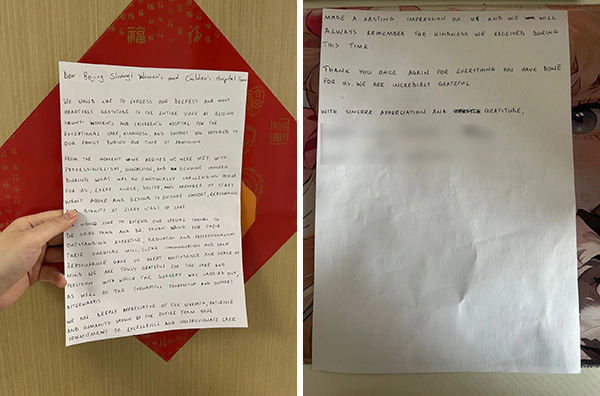 福
福
Dear Beijing Shunyi Women's and Children's Hospital Team
WE WOULD LIKE TO EXPRESS OUR DEEPEST AND MOST
HEARTFELT GRATITUDE TO THE ENTIRE STAFF AT BEIJING
SHUNYI WOMEN'S AND CHILDREN'S HOSPITAL FOR THE
EXCEPTIONAL CARE, KINDNESS, AND SUPPORT YOU PROVIDED TO
OUR FAMILY DURING OUR TIME OF ADMISSION.
FROM THE MOMENT WE ARRIVED WE WERE MET WITH
PROFESSIONALISM, COMPASSION, AND GENUINE CONCERN.
DURING WHAT WAS AN EMOTIONALLY CHALLENGING PERIOD
FOR US, EVERY NURSE, DOCTOR, AND MEMBER OF STAFF
WENT ABOVE AND BEYOND TO ENSURE COMFORT, REASSURANCE
AND DIGNITY AT EVERY STAGE OF CARE.
WE WOULD LIKE TO EXTEND OUR SPECIAL THANKS TO
DR FANG AND DR WANG FOR THEIR
OUTSTANDING EXPERTISE, DEDICATION AND PROFESSIONALISM
THEIR SURGICAL SKILL, CLEAR COMMUNICATION AND CALM
REASSURANCE GAVE US GREAT CONFIDENCE AND PEACE OF
MIND. WE ARE TRULY GRATEFUL FOR THE CARE AND
PRECISION WITH WHICH THE SURGERY WAS CARRIED OUT,
AS WELL AS THE THOUGHTFUL FOLLOW UP AND SUPPORT
AFTERWARDS
WE ARE DEEPLY APPRECIATIVE OF THE WARMTH, PATIENCE
AND HUMANITY SHOWN BY THE ENTIRE TEAM YOUR
COMMITMENT TO EXCELLENCE AND COMPASSIONATE CARE
MADE A LASTING IMPRESSION ON US AND WE WILL
ALWAYS REMEMBER THE KINDNESS WE RECEIVED DURING
THIS TIME.
THANK YOU ONCE AGAIN FOR EVERYTHING YOU HAVE DONE
FOR US. WE ARE INCREDIBLY GRATEFUL
WITH SINCERE APPRECIATION AND GRATITUDE,